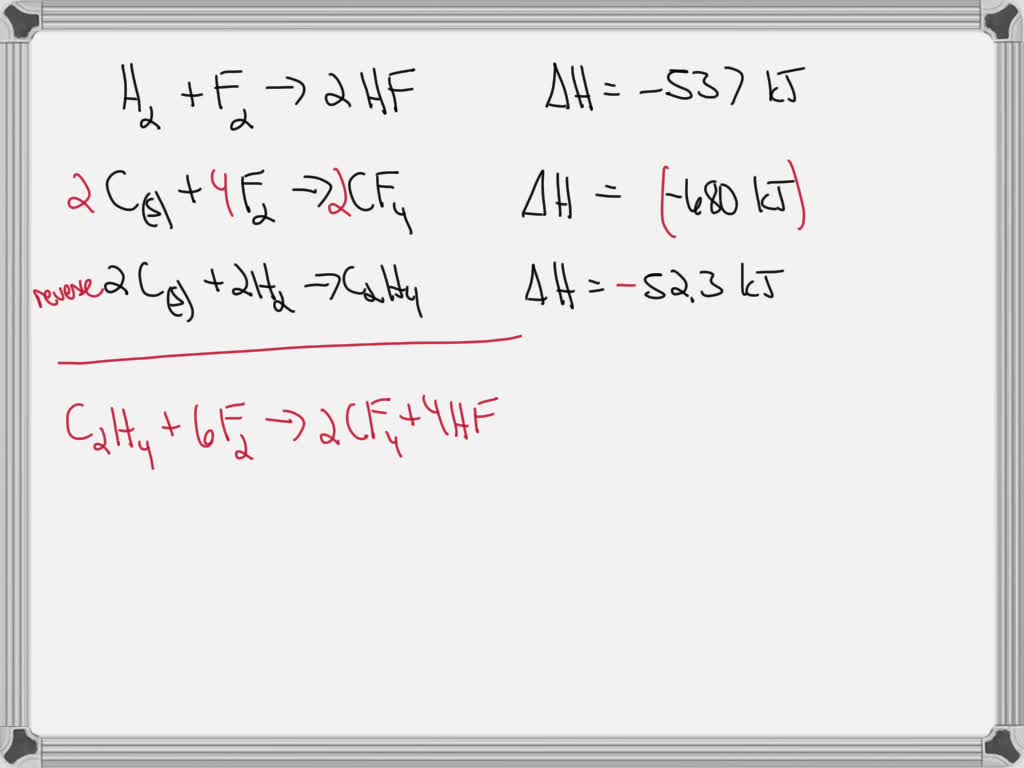 H₂ + F₂ → 2HF ΔH = -537 kJ
2C(s) + 4F₂ → 2CF₄ ΔH = (-680 kJ)
reverse 2C(s) + 2H₂ → C₂H₄ ΔH = -52.3 kJ
C₂H₄ + 6F₂ → 2CF₄ + 4HF